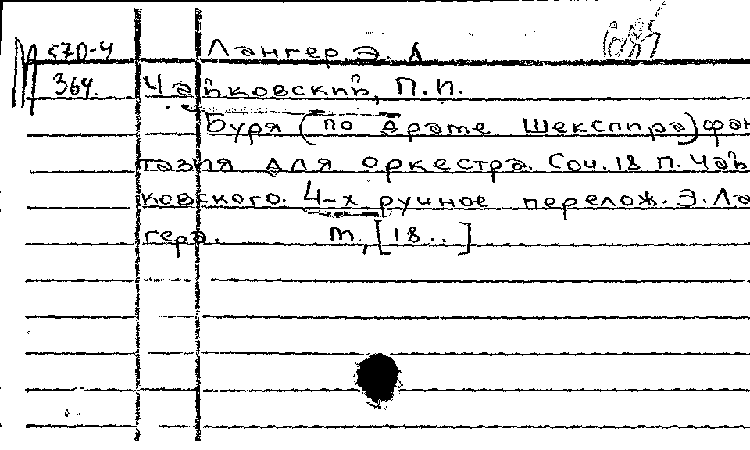 570-4 Лангер, Э. Л
364. Чайковский, П.И.
Буря (по драме Шекспира) фан
тазия для оркестра. Соч. 18 П. Чай
ковского. 4-х ручное перелож. Э. Ла
гера. М., [18..]